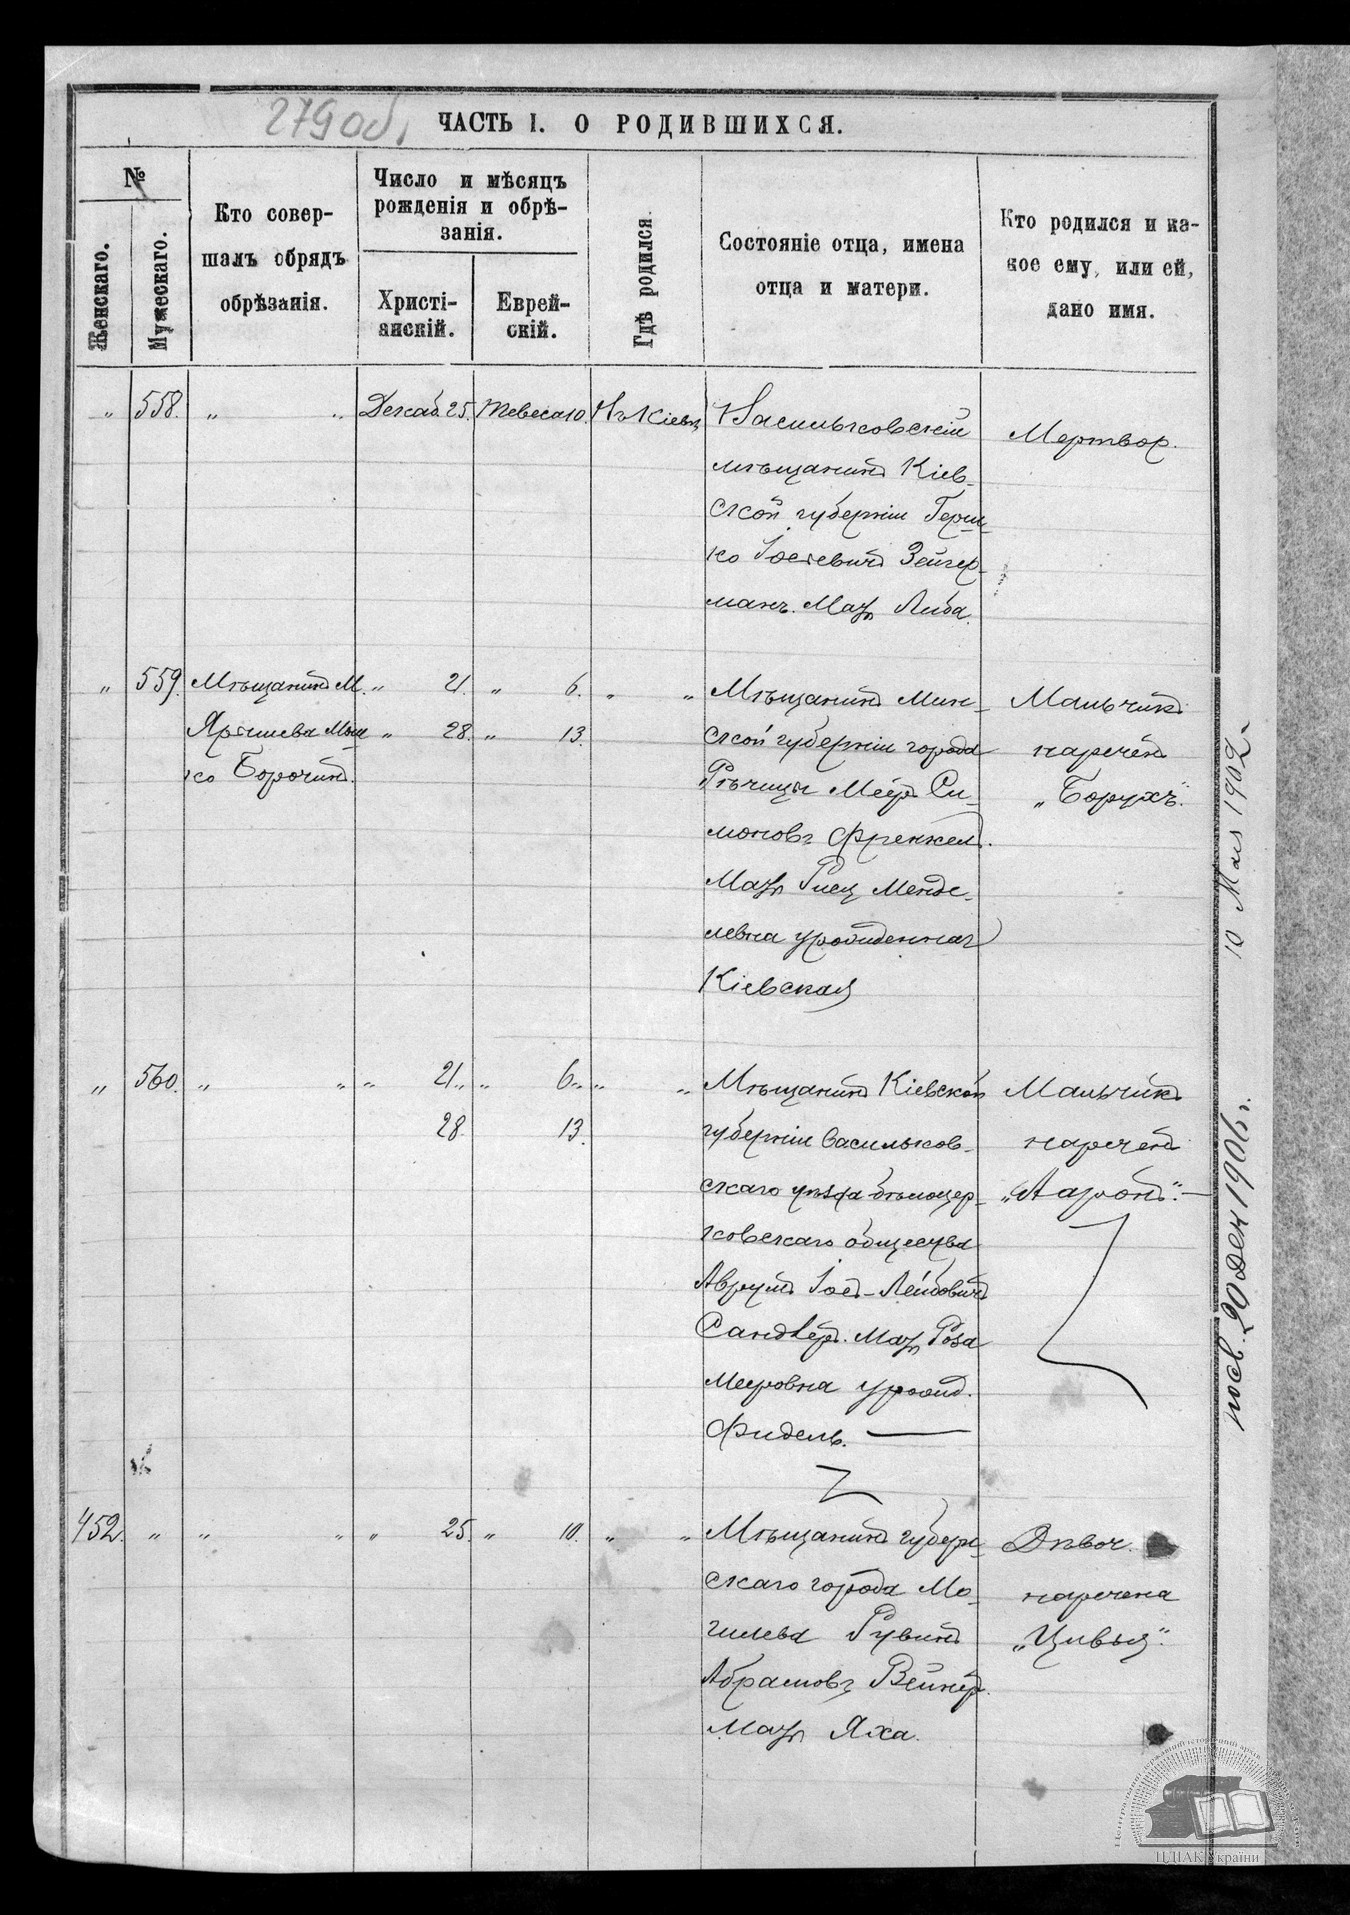 279 об.
ЧАСТЬ I. О РОДИВШИХСЯ.
№
Женскаго.
Мужескаго.
Кто совер-
шалъ обрядъ
обрѣзанія.
Число и мѣсяцъ
рожденія и обрѣ-
занія.
Христі-
анскій.
Еврей-
скій.
Гдѣ родился.
Состояніе отца, имена
отца и матери.
Кто родился и ка-
кое ему, или ей,
дано имя.
„ 558. „ „ Декаб. 25. Тевеса 10. Въ Кіевѣ
Васильковскій
мѣщанинъ Кіев-
ской губерніи Герш-
ко Іосевичъ Зейгер-
манъ. Мать Либа.
Мертвор.
„ 559. Мѣщанинъ М. „ 21. „ 6. „ „
Ярышева Мош „ 28. „ 13.
ко Борочинъ.
Мѣщанинъ Мин-
ской губерніи города
Рѣчицы Мееръ Си-
моновъ Френкель.
Мать Менде-
левна урожденная
Кіевская
Мальчикъ
нареченъ
„Борухъ".
„ 560. „ „ „ 21. „ 6. „ „
28. 13.
Мѣщанинъ Кіевской
губерніи Васильков-
скаго уѣзда бѣлоцер-
ковскаго общества
Аврумъ Іос-Лейбовичъ
Сандлеръ. Мать Роза
Мееровна урожд.
Фидель.
Мальчикъ
нареченъ
„Ааронъ".
452. „ „ „ „ 25. „ 10. „ „
Мѣщанинъ губерн-
скаго города Мо-
гилева Рувинъ
Абрамовъ Вейнеръ.
Мать Яха.
Дѣвоч.
наречена
„Цивья".
10 Мая 1902
20 Дек 1906 г.
ЦДІАК України